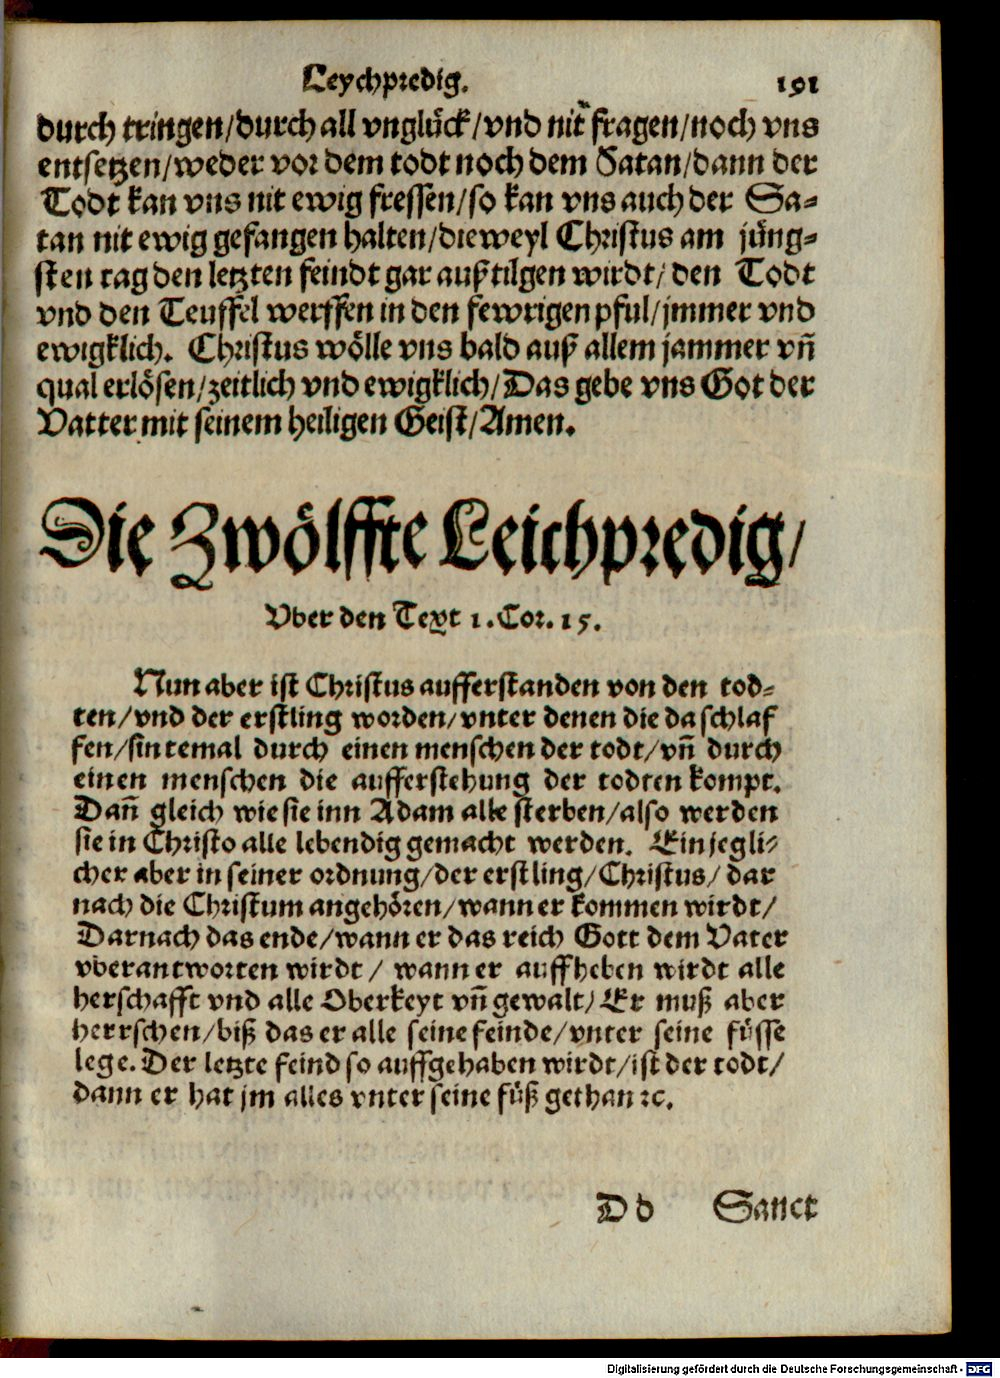 Leychpredig. 191
durch tringen/durch all vnglück/vnd nit fragen/noch vns
entsetzen/weder vor dem todt noch dem Satan/dann der
Todt kan vns nit ewig fressen/so kan vns auch der Sa-
tan nit ewig gefangen halten/dieweyl Christus am jüng-
sten tag den letzten feindt gar außtilgen wirdt/den Todt
vnd den Teuffel werffen in den fewrigen pful/jmmer vnd
ewigklich. Christus wölle vns bald auß allem jammer vñ
qual erlösen/zeitlich vnd ewigklich/Das gebe vns Got der
Vatter mit seinem heiligen Geist/Amen.
Die Zwölffte Leichpredig/
Vber den Text 1. Cor. 15.
Nun aber ist Christus aufferstanden von den tod-
ten/vnd der erstling worden/vnter denen die da schlaf
fen/sintemal durch einen menschen der todt/vñ durch
einen menschen die aufferstehung der todten kompt.
Dañ gleich wie sie inn Adam alle sterben/also werden
sie in Christo alle lebendig gemacht werden. Ein jegli-
cher aber in seiner ordnung/der erstling/Christus/dar
nach die Christum angehören/wann er kommen wirdt/
Darnach das ende/wann er das reich Gott dem Vater
vberantworten wirdt/wann er auffheben wirdt alle
herschafft vnd alle Oberkeyt vñ gewalt/Er muß aber
herrschen/biß das er alle seine feinde/vnter seine füsse
lege. Der letzte feind so auffgehaben wirdt/ist der todt/
dann er hat jm alles vnter seine füß gethan ꝛc.
D d Sanct
Digitalisierung gefördert durch die Deutsche Forschungsgemeinschaft - DFG